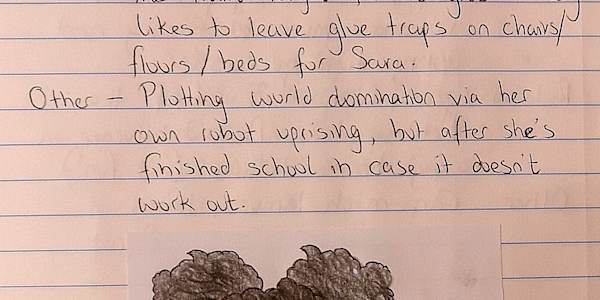 likes to leave glue traps on chairs/
floors/beds for Sara.
Other – Plotting world domination via her
own robot uprising, but after she's
finished school in case it doesn't
work out.